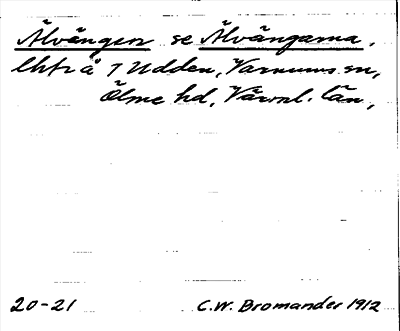 Älvängen se Älvängarna,
lhtr å 7 Udden, Varnums sn,
Ölme hd, Värml. län,
20-21 C.W. Bromander 1912